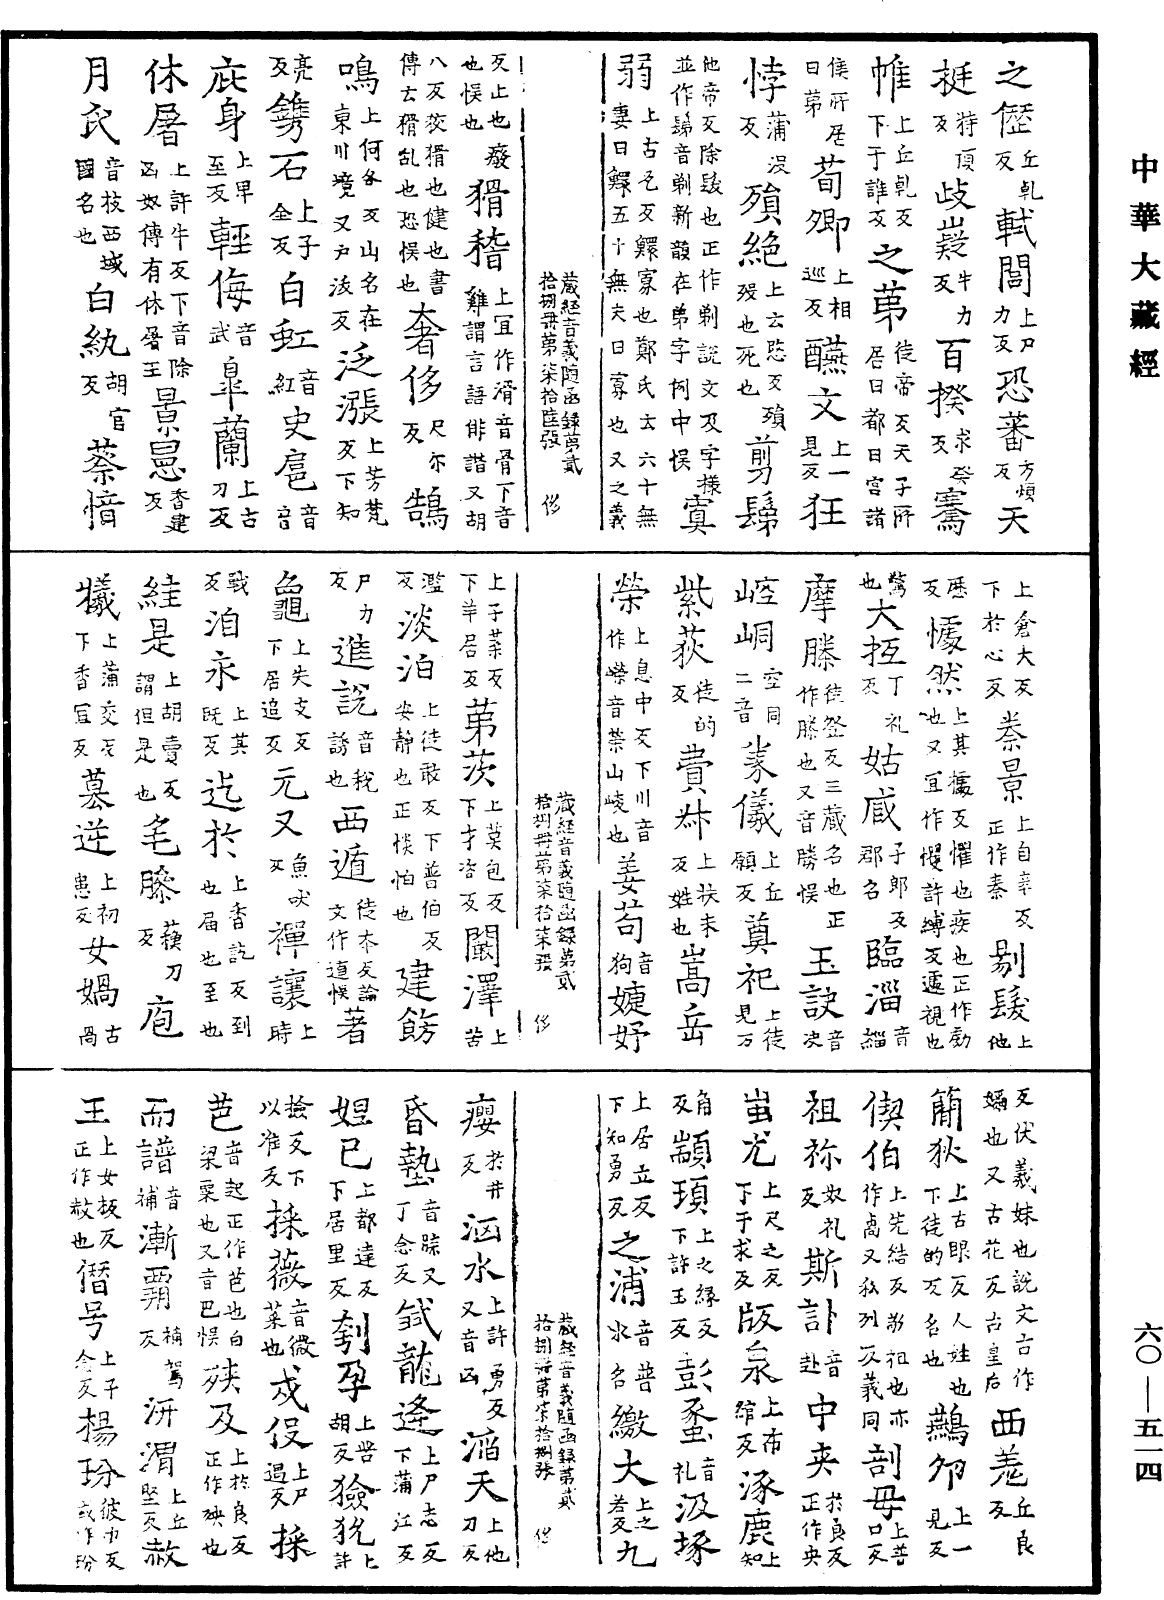 中華大藏經
之𠎝丘乹反軾閭上尸力反恐蕃方煩反天
挺特頂反歧嶷牛力反百揆求癸反騫
帷上丘乹反下于誰反之苐徒帝反天子所居曰都曰宮諸
侯所居曰苐荀卿上相巡反醼文上一見反狂
悖蒲沒反殞絶上云愍反殞歿也死也剪髢
他帝反除髮也正作剃說文及字樣並作髢音剃新韻在苐字𣏌中悮寡
弱上古瓦反鰥寡也鄭氏云六十無妻曰鰥五十無夫曰寡也又之義
藏經音義隨函録第貳拾捌冊第柒拾陸張　侈
反上也癈也悮也猾稽上冝作滑音骨下音雞謂言語俳諧又胡
八反狡猾也健也書傳云猾乱也恐悮也奢侈尺尒反鵠
鳴上何各反山名在東川境又尸浟反泛漲上芳梵反下知
亮反鐫石上子全反白虹音紅史扈音户
庇身上卑至反輕侮音武皐蘭上古刀反
休屠上許牛反下音除匈奴傳有休屠王景㬎香建反
月氏音枝西域國名也白紈胡官反蔡愔
上倉大反下於心反桊景上自辛反正作秦剔髮上他
歷反懅然上其據反懼也疾也正作勮也又冝作㦜許縛反遽視也
驚也大抵丁礼反姑臧子郎反郡名臨淄音緇
摩縢徒登反三藏名也正作滕也又音勝悮玉訣音決
崆峒空同二音𧰼儀上丘願反奠祀上徒見反
紫荻徒的反費㭊上扶未反姓也嵩岳
榮上息中反下川音作嶸音榮山崚也姜苟音狗婕妤
藏經音義隨函録第貳拾捌冊第柒拾柒張　侈
上子䒶反下羊居反苐茨上莫包反下才咨反闞澤上苦
濫反淡泊上徒敢反下普伯反安靜也正惔怕也建餝
尸力反進説音我誘也西遁徒本反論文作遉悮著
龜上失支反下居追反元又魚吠反禪讓上時
戰反洎永上其既反迄於上香訖反到也届也至也
絓是上胡賣反謂但是也毛縢蕛刀反庖
犧上蒲交反下香冝反墓逆上初患反女媧古咼
反伏羲妹也說文古作嬀也又古花反古皇后西羗丘良反
簡狄上古眼反人姓也下徒的反名也鷰夘上一見反
偰伯上先結反㓝祖也亦作卨又私列反義同剖母上普口反
祖祢奴礼反斯訃音赴中夹於良反正作央
蚩尤上尺之反下于求反版泉上布綰反涿鹿上知
角反顓頊上之緣反下許玉反彭蠡音礼汲㧻
上居立反下知勇反之浦音普水名繳大上之若反九
藏經音義隨函録第貳拾捌冊第柒拾捌張　侈
癭於井反洶水上許勇反又音凶滔天上他刀反
昏墊音䟽又丁念反㦯龍逄上尸志反下蒲江反
妲巳上都達反下居里反刳孕上苦胡反獫狁上許
撿反下以准反採薇音微菜也戍伇上尸遇反採
芭音起正作芑也白梁粟也又音巴悮殃及上於良反正作殃也
而譜音補漸覇補駕反汧渭上丘堅反赦
王上女板反正作赧也僭号上子念反楊玢彼巾反或作玢
六〇—五一四